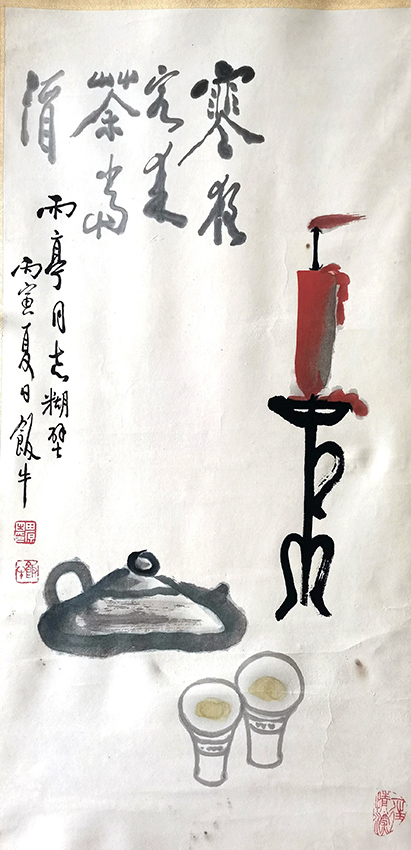 寒夜
客来
茶當
酒
雨亭同志糊壁
丙寅夏日飯牛